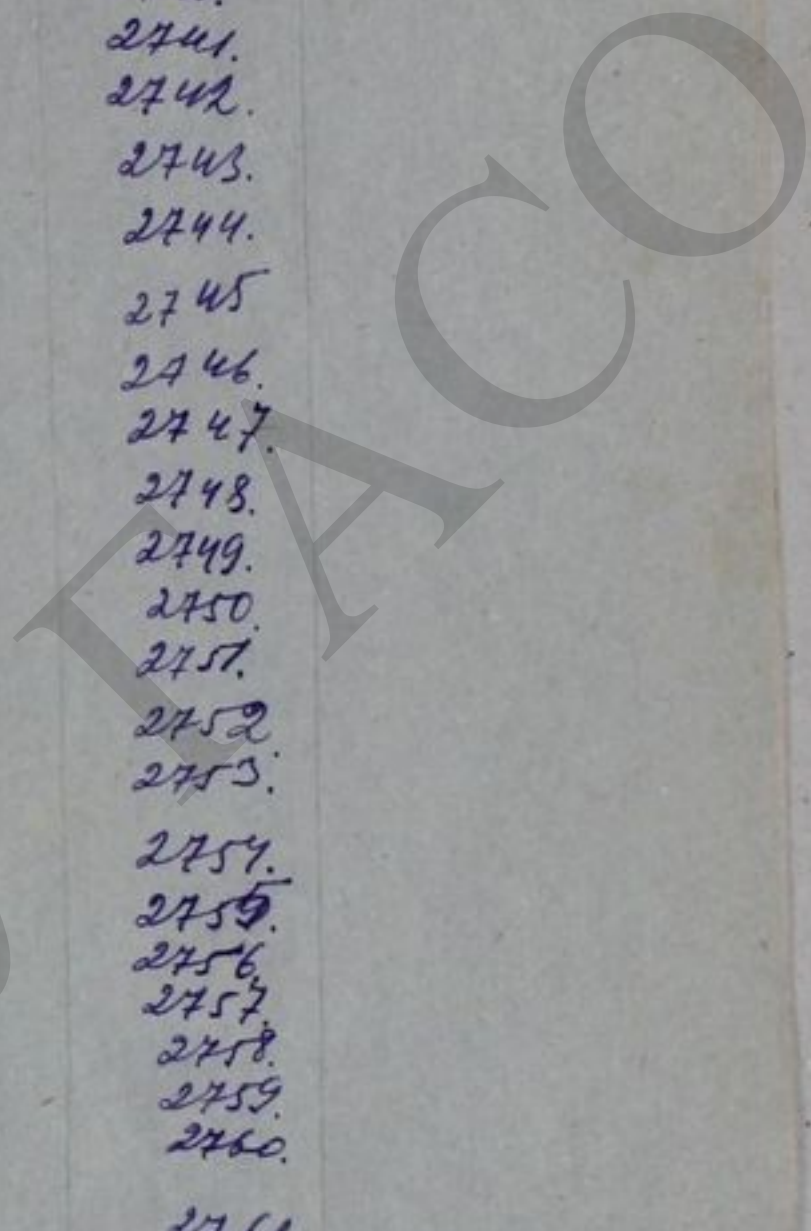 2741.
2742.
2743.
2744.
2745
2746.
2747.
2748.
2749.
2750.
2751.
2752.
2753.
2754.
2755.
2756.
2757.
2758.
2759.
2760.
ГАСО